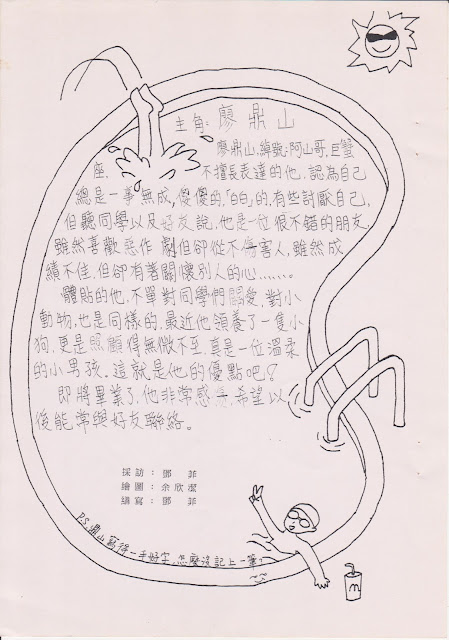 主角：廖鼎山
廖鼎山，綽號：阿山哥，巨蟹
座，不擅長表達的他，認為自己
總是一事無成，傻傻的，「白白」的，有些討厭自己，
但聽同學以及好友說，他是一位很不錯的朋友，
雖然喜歡惡作劇但卻從不傷害人，雖然成
績不佳，但卻有著關懷別人的心......。
體貼的他，不單對同學們關愛，對小
動物，也是同樣的，最近他領養了一隻小
狗，更是照顧得無微不至，真是一位溫柔
的小男孩。這就是他的優點吧？
即將畢業了，他非常感，希望以
後能常與好友聯絡。
採訪：鄧菲
繪圖：余欣潔
編寫：鄧菲
P.S.鼎山寫得一手好字，怎麼沒記上一筆？
m